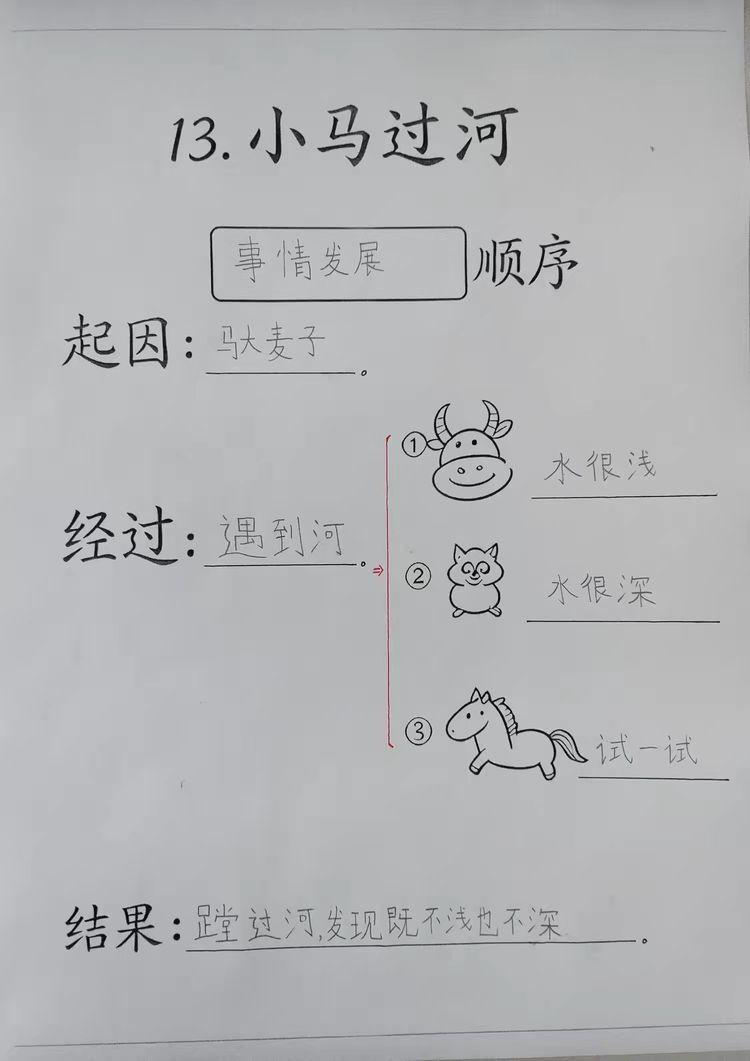 13.小马过河
事情发展 顺序
起因:驮麦子。
① 水很浅
经过:遇到河。⇒
② 水很深
③ 试一试
结果:蹚过河,发现既不浅也不深。